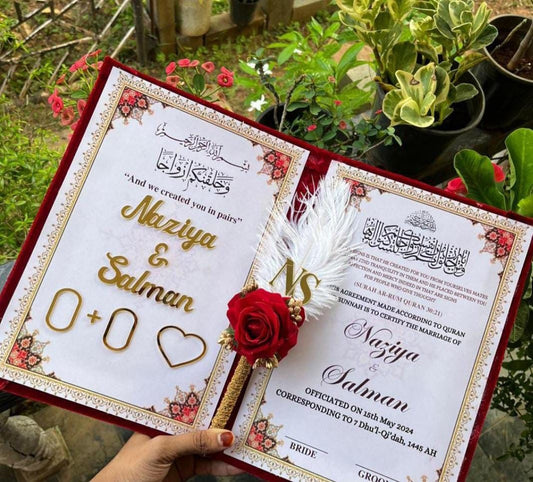 بسم الله الرحمن الرحيم
وخلقناكم أزواجا
“And we created you in pairs”
Naziya
&
Salman
0 + 0 ♡
NS
IS THAT HE CREATED FOR YOU FROM YOURSELVES MATES
FIND TRANQUILITY IN THEM AND HE PLACED BETWEEN YOU
AND MERCY INDEED IN THAT ARE SIGNS
FOR PEOPLE WHO GIVE THOUGHT
(SURAH AR-RUM QURAN 30:21)
AGREEMENT MADE ACCORDING TO QURAN
SUNNAH IS TO CERTIFY THE MARRIAGE OF
Naziya
&
Salman
OFFICIATED ON 15th May 2024
CORRESPONDING TO 7 Dhu'l-Q'dah, 1445 AH
BRIDE
GROOM